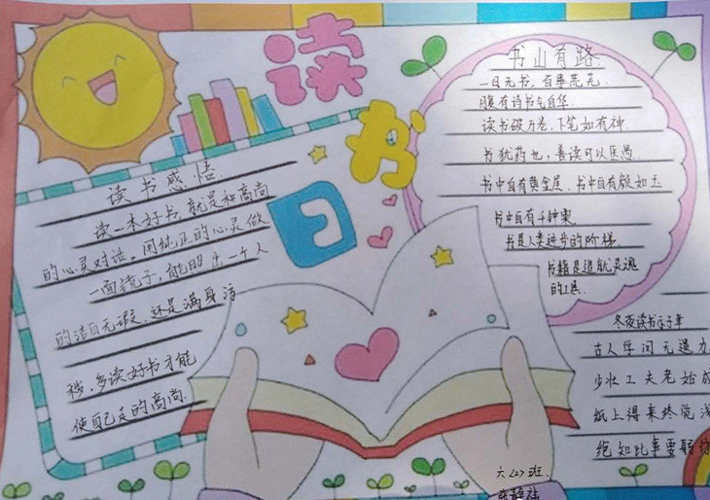 读
书
日
读书感悟
读一本好书,就是和高尚
的心灵对话。用纯正的心灵做
一面镜子,能照出一个人
的洁白无瑕,还是满身污
秽。多读好书才能
使自己变的高尚.
书山有路
一日无书,百事荒芜.
腹有诗书气自华
读书破万卷,下笔如有神.
书犹药也,善读可以医愚.
书中自有黄金屋,书中自有颜如玉
书中自有千钟粟
书是人类进步的阶梯.
书籍是造就灵魂
的工具.
冬夜读书示子聿
古人学问无遗力
少壮工夫老始成
纸上得来终觉浅
绝知此事要躬
六(2)班